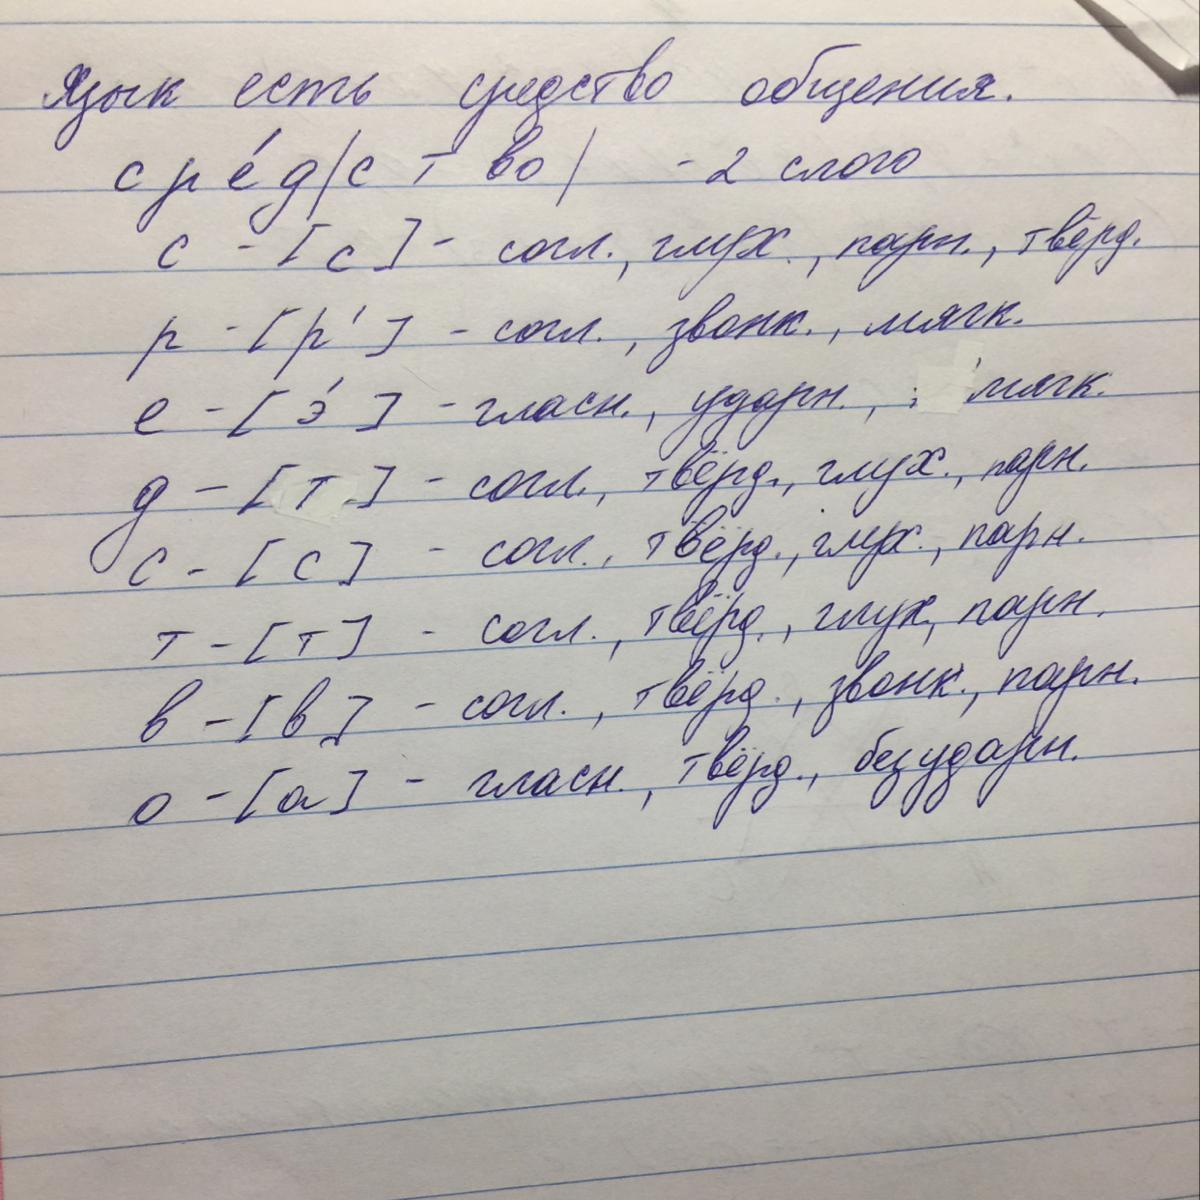 Язык есть средство общения.
сре́д/ство/ - 2 слого
с - [с] - согл., глух., парн., твёрд.
р - [р'] - согл., звонк., мягк.
е - [э́] - гласн., ударн., мягк.
д - [т] - согл., твёрд., глух., парн.
с - [с] - согл., твёрд., глух., парн.
т - [т] - согл., твёрд., глух, парн.
в - [в] - согл., твёрд., звонк., парн.
о - [а] - гласн., твёрд., безударн.